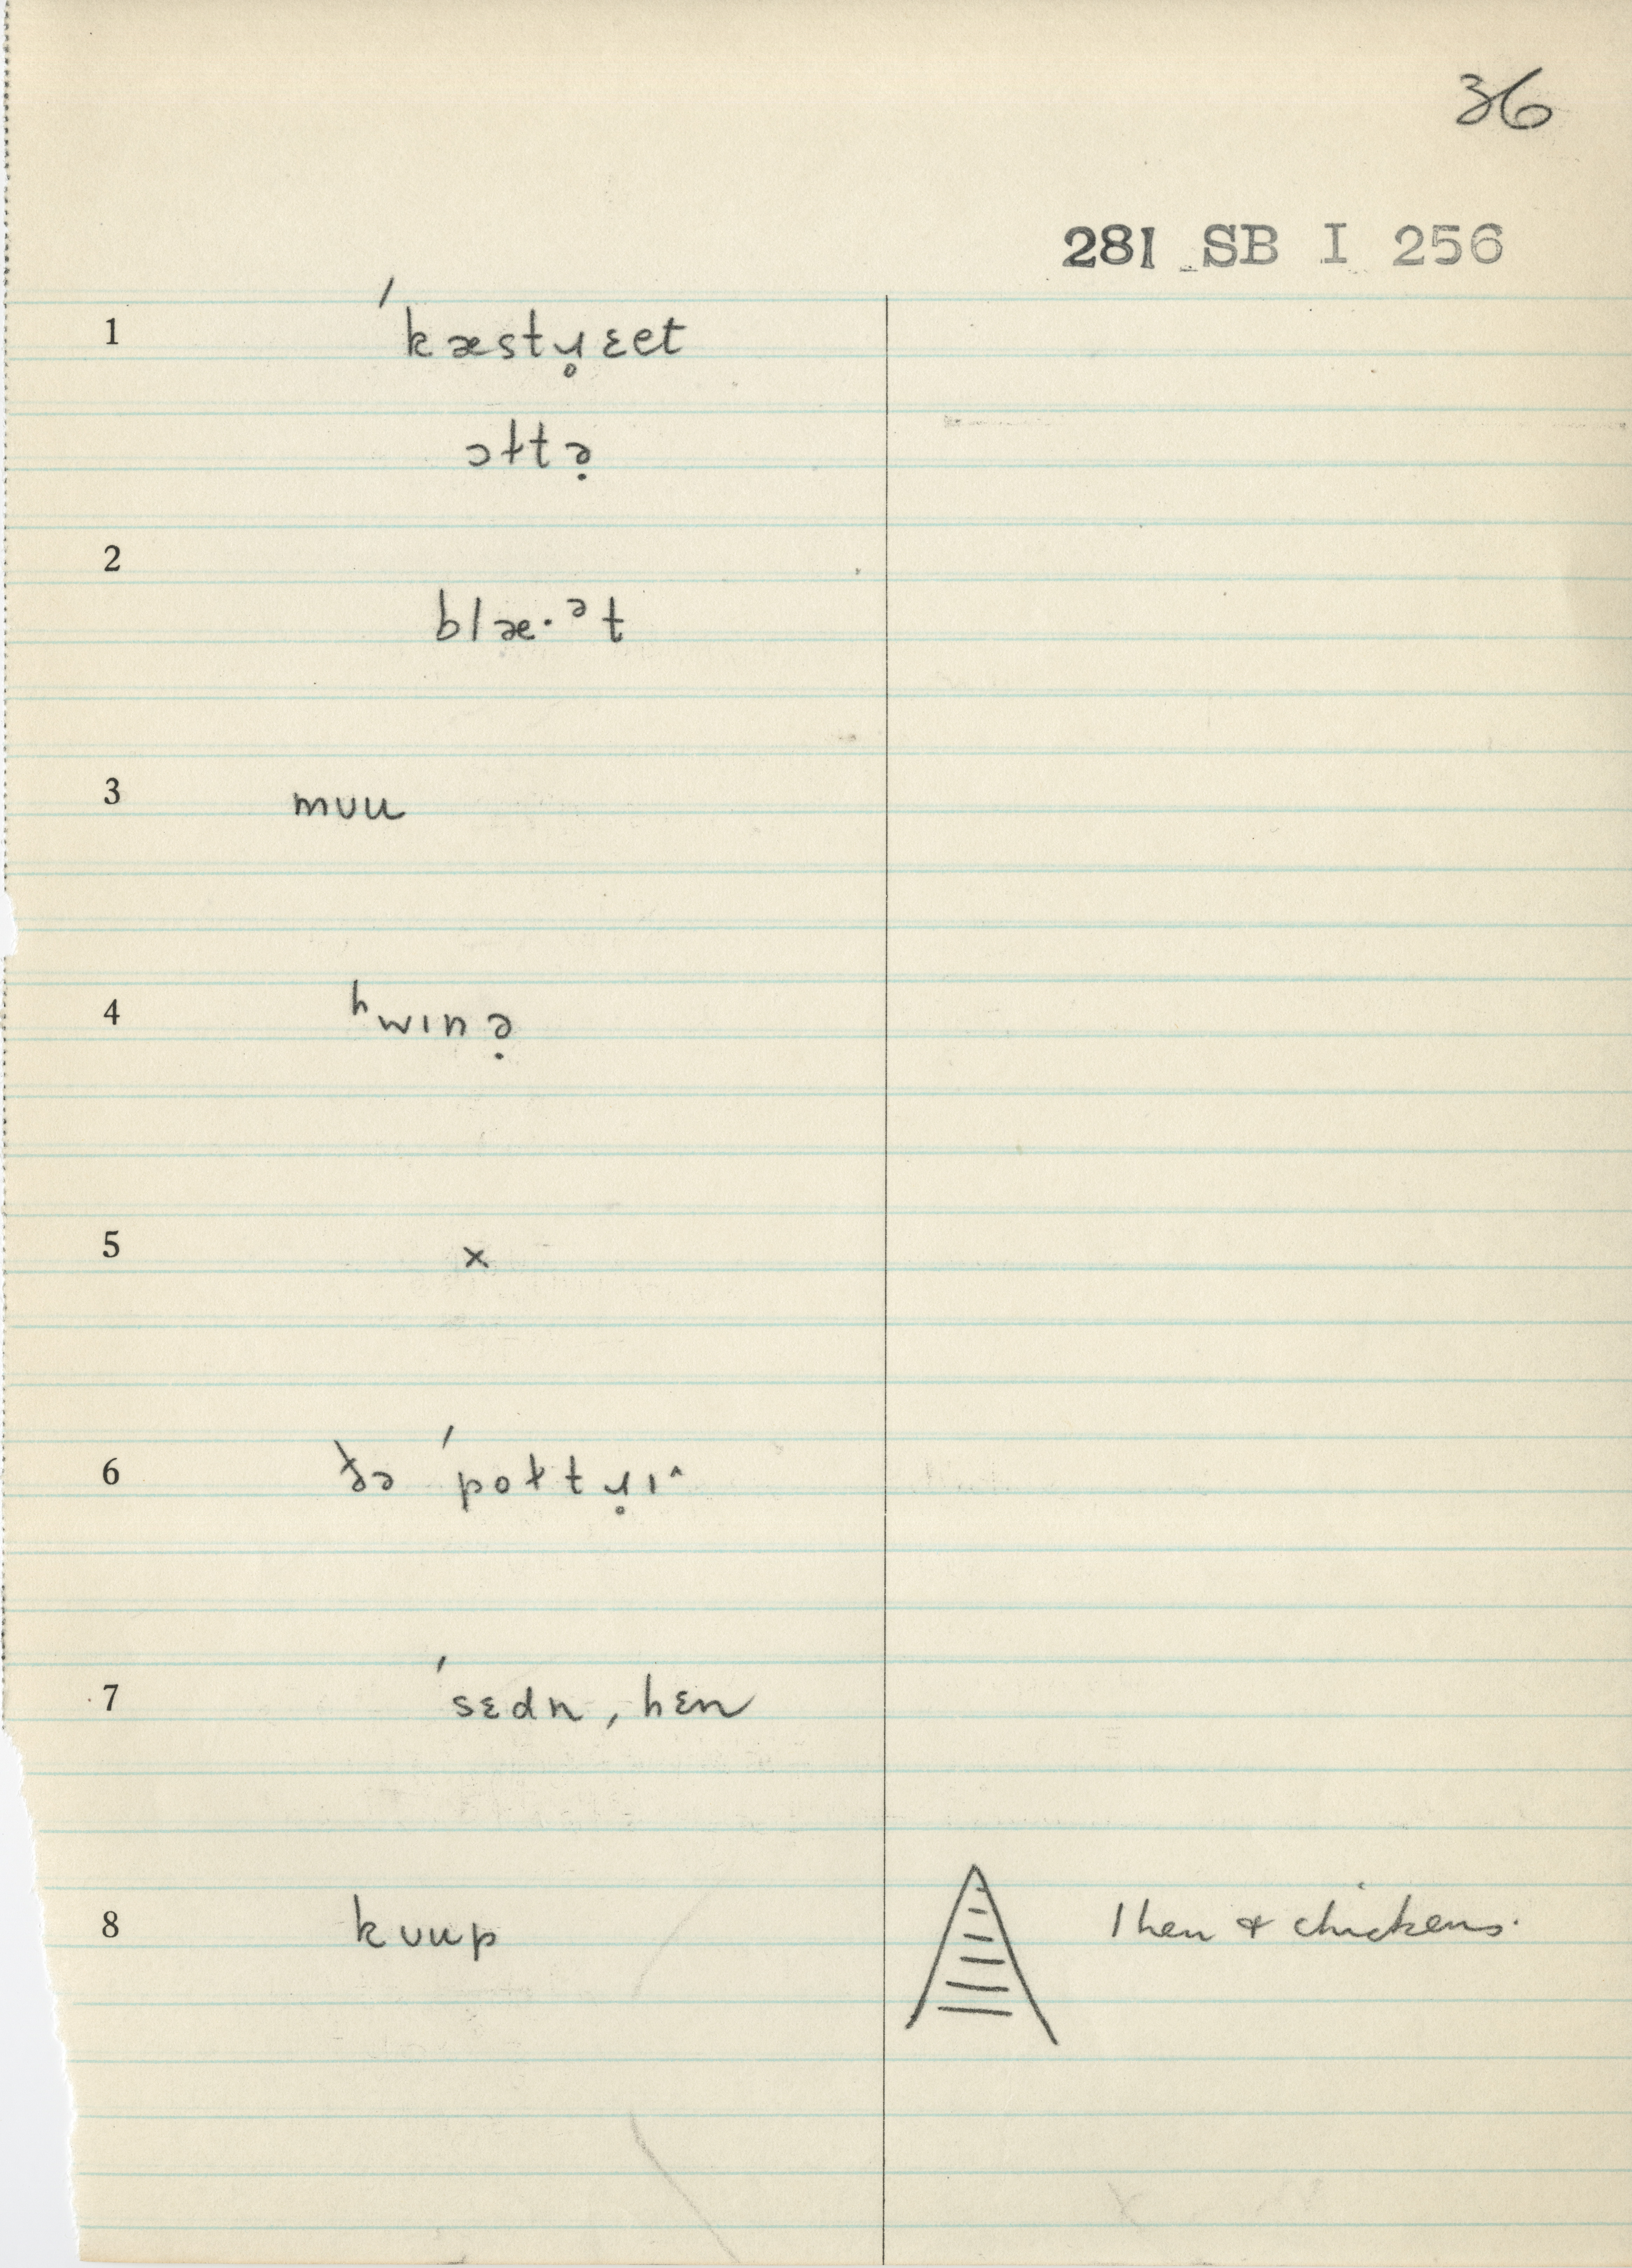 36
281 SB I 256
1 ˈkæstɹ̥ɛet
ɔɫtə̣
2
blæ·ᵊt
3 mʊu
4 ʰwɪnə̣
5 x
6 ðə ˈpoɫtɹ̥ɪ^
7 ˈsɛdn, hɛn
8 kʊup 1 hen & chickens.